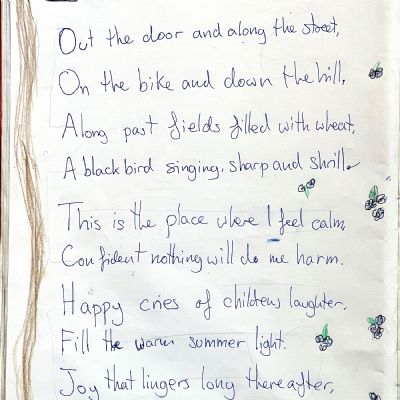 Out the door and along the street,
On the bike and down the hill,
Along past fields filled with wheat,
A blackbird singing, sharp and shrill.
This is the place where I feel calm,
Confident nothing will do me harm.
Happy cries of childrens laughter,
Fill the warm summer light.
Joy that lingers long thereafter,